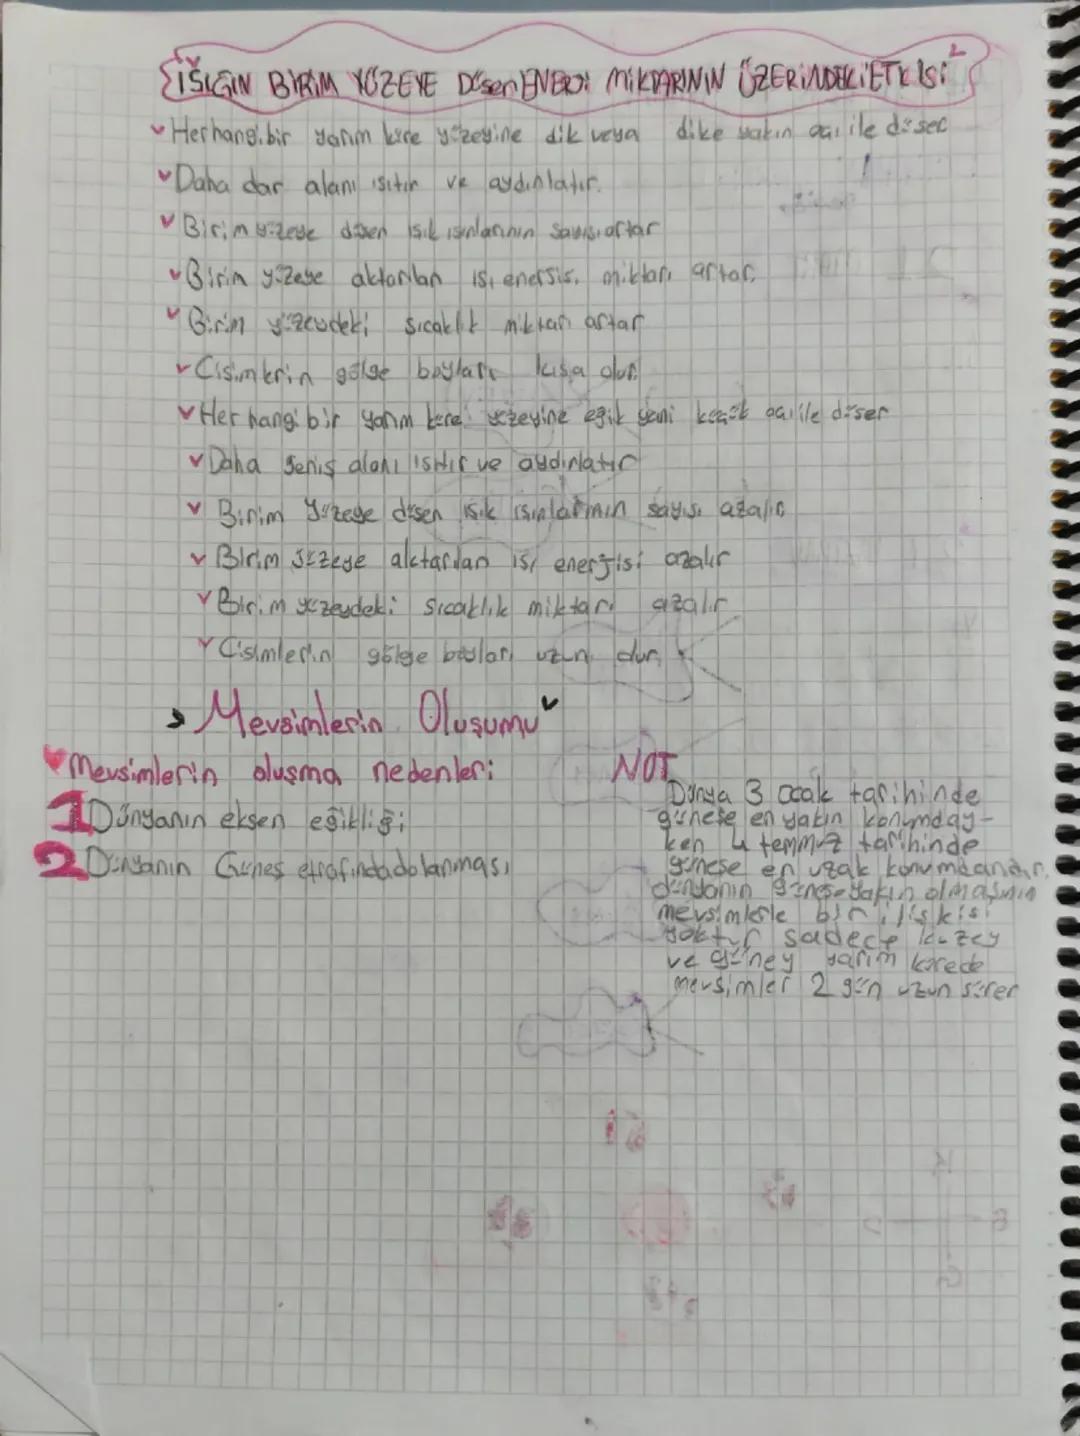 IŞIĞIN BİRİM YÜZEYE Düşen ENERJİ MİKTARININ ÜZERİNDEKİ ETKİSİ
Herhangi bir yarım küre yüzeyine dik veya dike yakın açı ile düşer
Daha dar alanı ısıtır ve aydınlatır.
Birim yüzeye düşen ışık ışınlarının sayısı artar
Birim yüzeye aktarılan ısı enerjisi miktarı artar.
Birim yüzeydeki sıcaklık miktarı artar
Cisimlerin gölge boyları kısa olur.
Her hangi bir yarım küre yüzeyine eğik yani küçük açı ile düşer
Daha geniş alanı ısıtır ve aydınlatır
Birim yüzeye düşen ışık ışınlarının sayısı azalır
Birim yüzeye aktarılan ısı enerjisi azalır
Birim yüzeydeki sıcaklık miktarı azalır
Cisimlerin gölge boyları uzun olur
Mevsimlerin Oluşumu
Mevsimlerin oluşma nedenleri
1 Dünyanın eksen eğikliği
2 Dünyanın Güneş etrafında dolanması
NOT
Dünya 3 ocak tarihinde
güneşe en yakın konumday-
ken 4 temmuz tarihinde
güneşe en uzak konumdandır.
dünyanın güneşe yakın olmasının
mevsimlerle bir ilişkisi
yoktur sadece kuzey
ve güney yarım kürede
mevsimler 2 gün uzun sürer